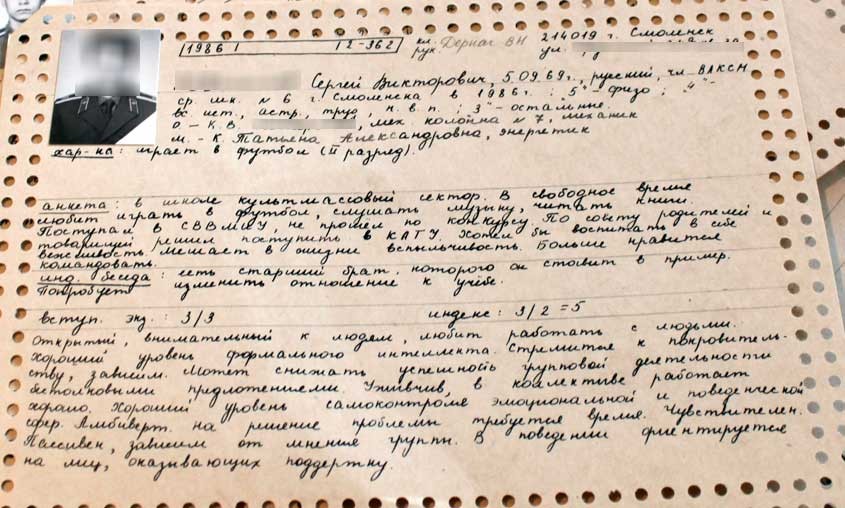 1986 I 2-362 вл. рук. Дернач ВН 214019 г. Смоленск
ул.
Сергей Викторович, 5.09.69г., русский, чл. ВЛКСМ
ср. шк. №6 г. Смоленска в 1986г.; "5" физо; "4"-
вс. ист., астр., труд, н.в.п.; "3"-остальные.
о. - К. В. мех. колонна №7, механик
м. - К. Татьяна Александровна, энергетик
хар-ка: играет в футбол (II разряд).
анкета: в школе культмассовый сектор. В свободное время
любит играть в футбол, слушать музыку, читать книги.
Поступал в СВВМИУ, не прошел по конкурсу. По совету родителей и
товарищей решил поступить в КАТУ. Хотел бы воспитать в себе
вежливость. Мешает в жизни вспыльчивость. Больше нравится
командовать.
инд. беседа: есть старший брат, которого он ставит в пример.
Попробует изменить отношение к учебе.
вступ. экз.: 3/3 индекс: 3/2 = 5
Открытый, внимательный к людям, любит работать с людьми.
Хороший уровень формального интеллекта. Стремится к покровитель-
ству, зависим. Может снижать успешность групповой деятельности
бестолковыми предложениями. Уживчив, в коллективе работает
хорошо. Хороший уровень самоконтроля эмоциональной и поведенческой
сфер. Амбиверт. На решение проблемы требуется время. Чувствителен.
Пассивен, зависим от мнения группы. В поведении ориентируется
на лиц, оказывающих поддержку.